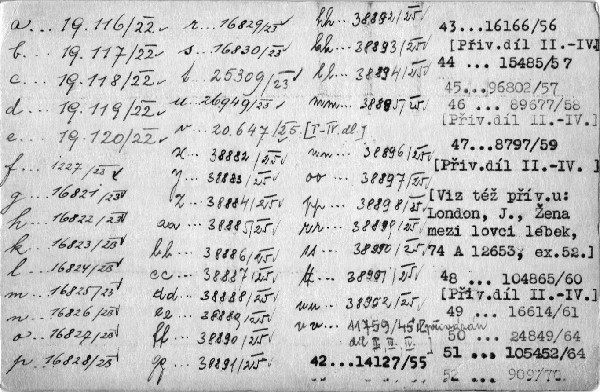 a...19.116/22
b...19.117/22
c...19.118/22
d...19.119/22
e...19.120/22
f...1227/23
g...16821/23
h...16822/23
k...16823/23
l...16824/23
m...16825/23
n...16826/23
o...16827/23
p...16828/23
r...16829/23
s...16830/23
t...25309/23
u...26949/23
v...20.647/25 [I-IV.dl.]
x...38882/25
y...38883/25
z...38884/25
aa...38885/25
bb...38886/25
cc...38887/25
dd...38888/25
ee...38889/25
ff...38890/25
gg...38891/25
hh...38892/25
kk...38893/25
ll...38894/25
mm...38895/25
nn...38896/25
oo...38897/25
pp...38898/25
rr...38899/25
ss...38900/25
tt...38901/25
uu...38902/25
vv...41759/45
díl II. III. IV.
42...14127/55
43...16166/56
[Přív.díl II.-IV.]
44 ... 15485/57
45...96802/57
46 ... 89677/58
[Přív.díl II.-IV.]
47...8797/59
[Přív.díl II.-IV. ]
[Viz též přív.u:
London, J., Žena
mezi lovci lebek,
74 A 12653, ex.52.]
48 ... 104865/60
[Přív.díl II.-IV.]
49 ... 16614/61
50 ... 24849/64
51 ... 105452/64
52 ... 909/70